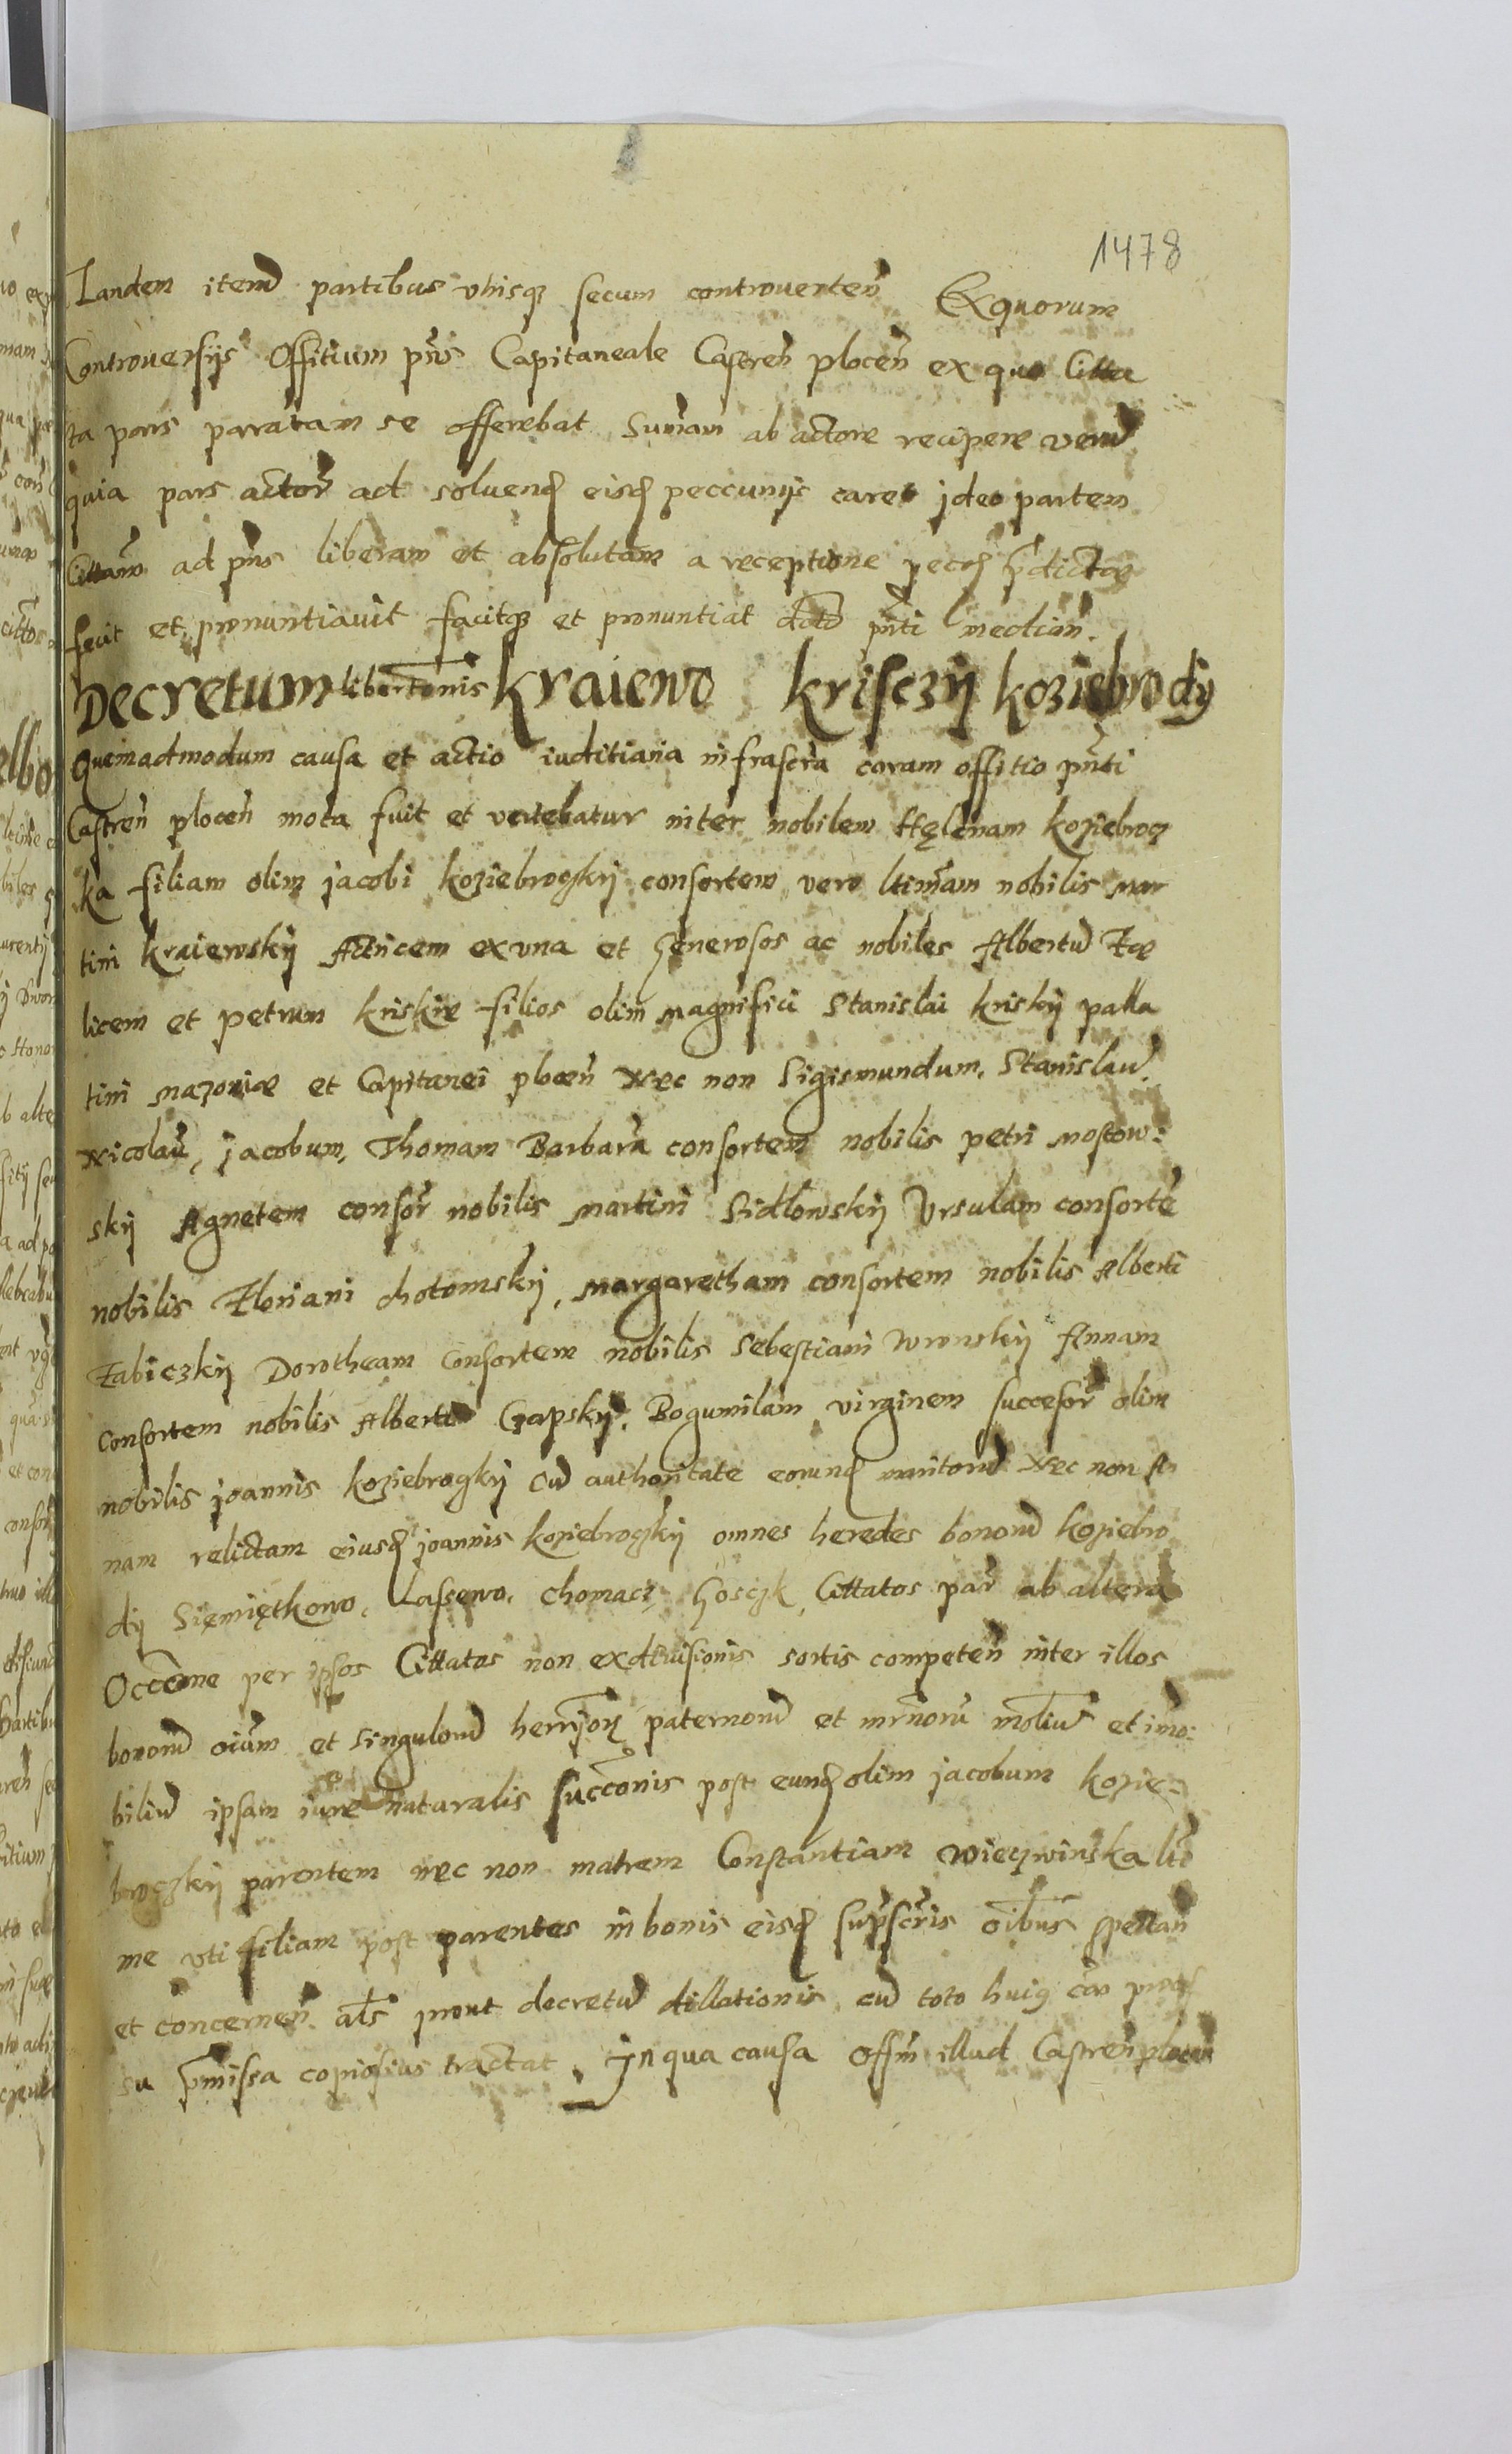 1478
Tandem iterũ partibus vtrisq3 secum controuerteñ Ex quorum
Controuersijs Offitium pñs Capitaneale Castreñ ploceñ ex quo Citta
ta pars parratam se offerebat Sum̃am ab actore recipere verũ
quia pars actor̃ ad soluenđ eisđ peccunijs caret jdeo partem
Cittam̃ ad pñs liberam et absolutam a receptione pecc̃ p̃dictæ
fecit et pronuntiauit facitq3 et pronuntiat dc̃to pñti median̄.
Decretum libertonis̃ kraiewo krisczij koziebrody
Quemadmodum causa et actio iuditiaria infrascr̃a coram offitio pñti
Castreñ ploceñ mota fuit et vertebatur inter nobilem Hęlenam koziebrocz
ka filiam olim jacobi koziebroczkij consortem vero ltimãm nobilis Mar
tini kraiewskij Actricem ex vna et Generosos ac nobiles Albertũ Fæ
licem et petrum kriskie filios olim Magnifici Stanislai kriskij palla
tini Mazoviæ et Capitanei ploceñ Nec non Sigismundum, Stanislaũ
Nicolaũ, jacobum, Thomam Barbarã consortem nobilis petri Mostow:
skij Agnetem consor̃ nobilis Martini Sidlowskij Vrsulam consortẽ
nobilis Floriani chotomskij, Margaretham consortem nobilis Alberti
Zabiczkij Dorotheam Consortem nobilis Sebestiani Wronskij Annam
consortem nobilis Alberti Czapskij, Bogumilam virginem successor̃ olim
nobilis joannis koziebroczkij cũ authoritate eorunđ maritorũ Nec non An
nam relictam eiusđ joannis koziebroczkij omnes heredes bonorũ koziebro
dij Siemiętkowo, Lassewo, chomacz, Goszk, Cittatos par̃ ab altera
Occc̃one per ipsos Cittatos non exdiuisionis sortis competeñ inter illos
bonorũ oiũm et singulorũ herr̃ijorʒ paternorũ et mr̃norũ mol̃iũ et im̃o:
biliũ ipsam iure naturalis succc̃onis post eunđ olim jacobum kozie=
broczkij parentem nec non matrem Constantiam Wieczwinska ltĩ
me vti filiam post parentes in bonis eisđ sup̃scr̃is oĩbus spectan̄
et concerneñ. al̃s prout decretũ dillationis cũ toto huiꝯ cãæ proces
su p̃missa copiosius tractat. Jn qua causa Offm̃ illud Castreñ ploceñ